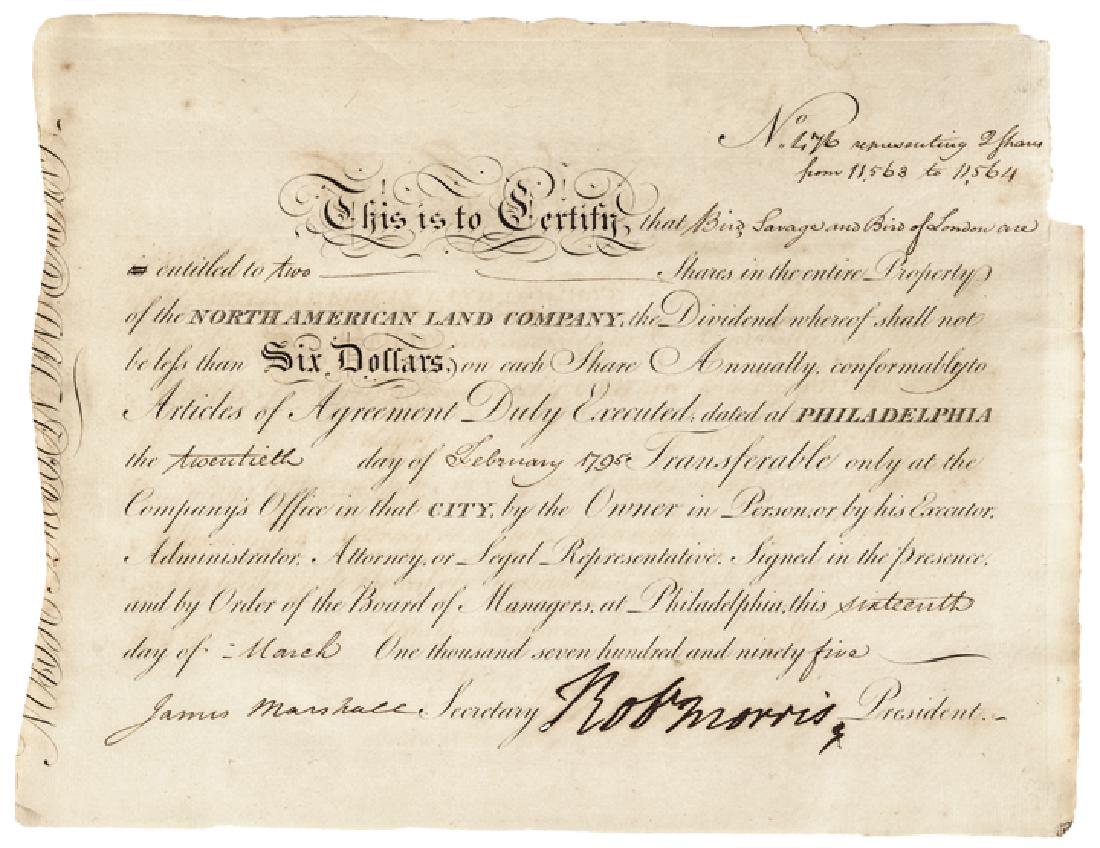 No. 476 representing 2 Shares
from 11,563 to 11,564
This is to Certify, that Bird Savage and Bird of London are
is entitled to two Shares in the entire Property
of the NORTH AMERICAN LAND COMPANY, the Dividend whereof shall not
be less than Six Dollars, on each Share Annually, conformably to
Articles of Agreement Duly Executed, dated at PHILADELPHIA
the twentieth day of February 1795 Transferable only at the
Company's Office in that CITY, by the Owner in Person, or by his Executor,
Administrator, Attorney, or Legal Representative. Signed in the presence,
and by Order of the Board of Managers, at Philadelphia, this sixteenth
day of March One thousand seven hundred and ninety five
James Marshall Secretary Robt Morris, President.